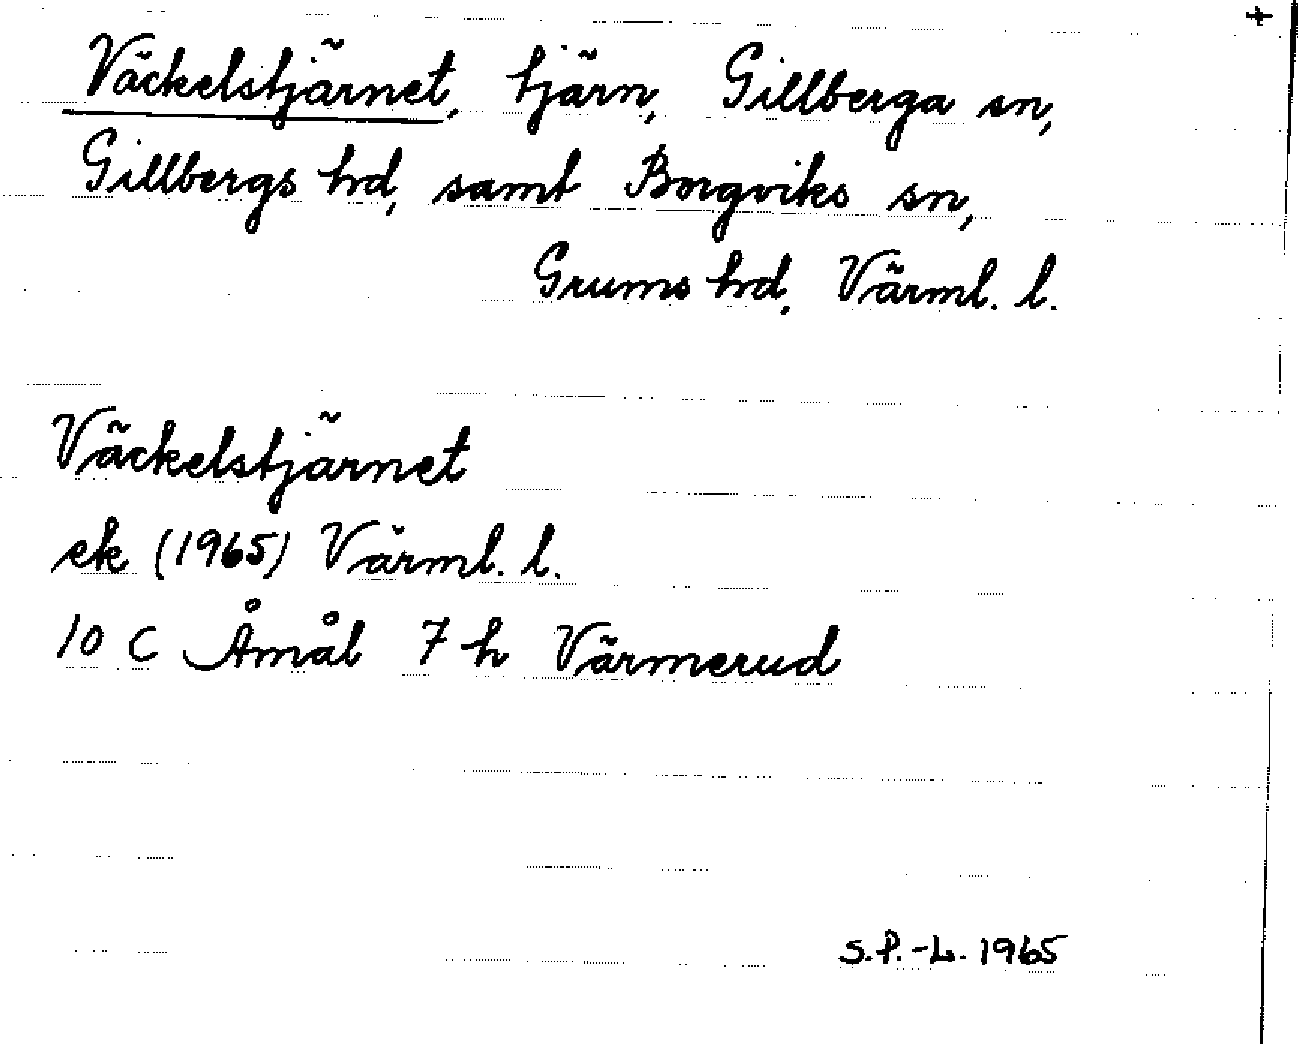 +
Väckelstjärnet, tjärn, Gillberga sn,
Gillbergs hd, samt Borgviks sn,
Grums hd, Värml. l.
Väckelstjärnet
ek (1965) Värml. l.
10 C Åmål 7 h Värmerud
S.P.-L. 1965